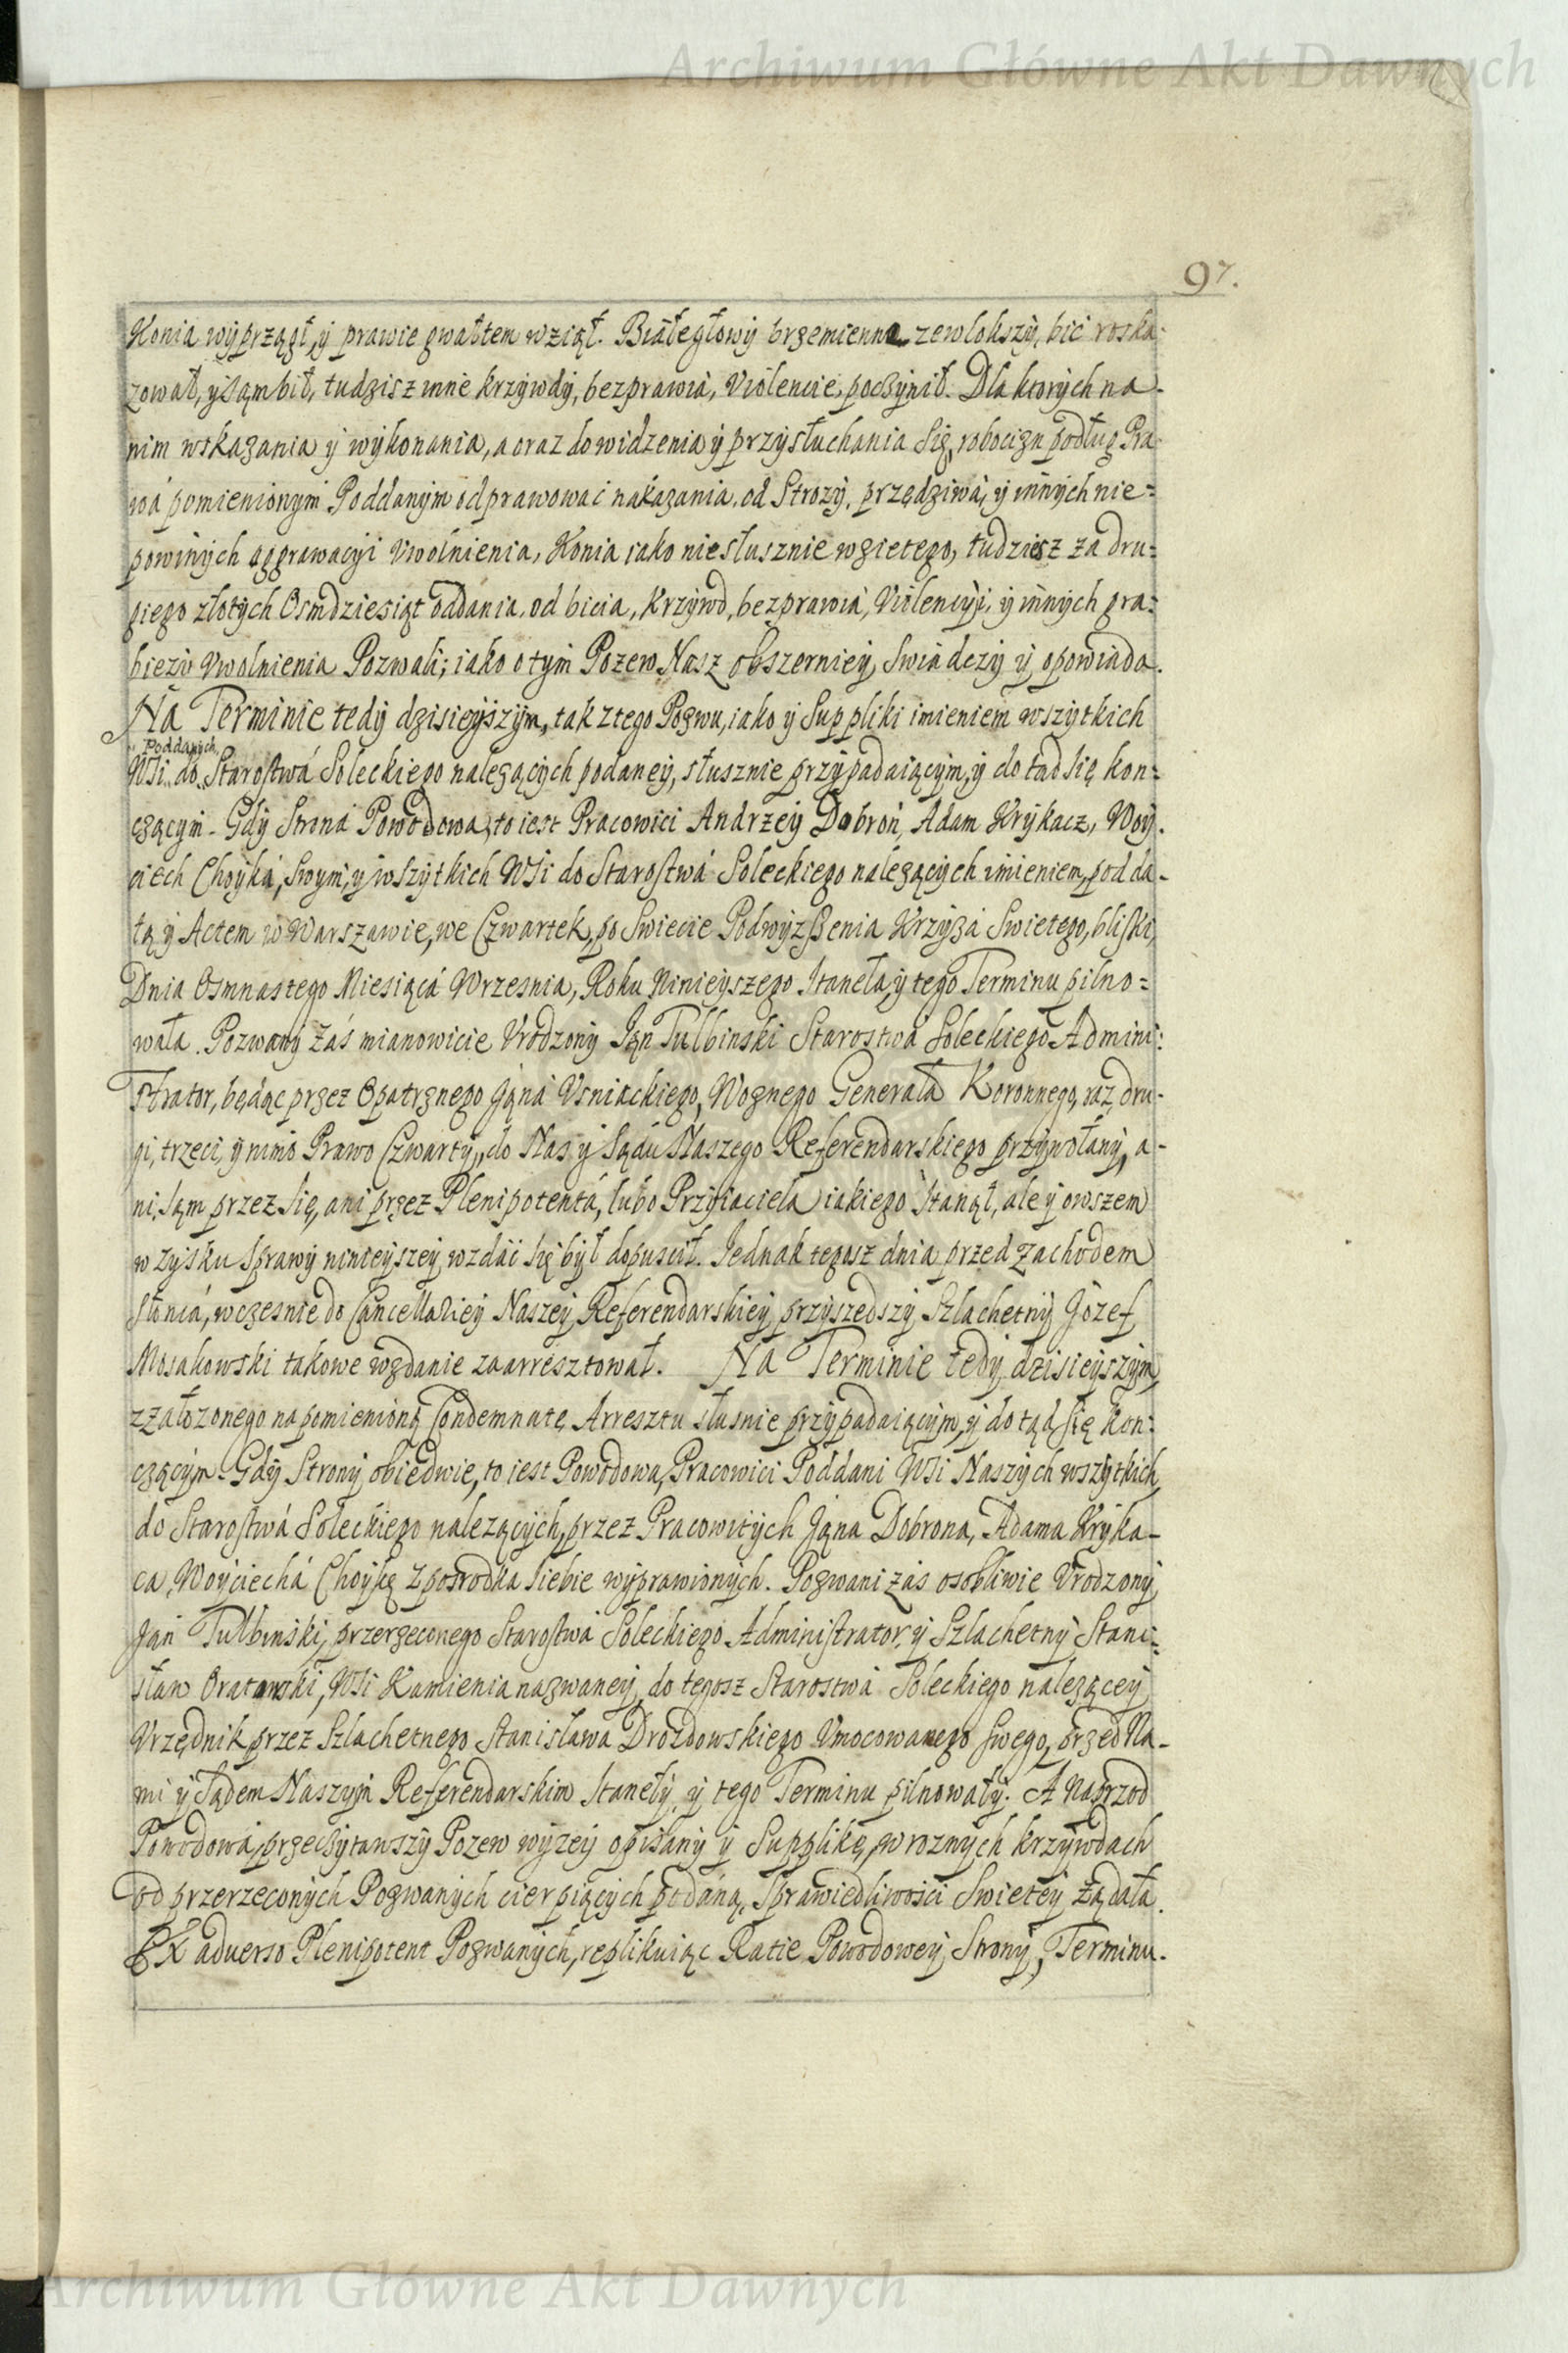 Archiwum Główne Akt Dawnych
97.
Konia wyprzągł, y prawie gwałtem wziął. Białegłowy brzemienne zewlokszy, bić roska-
zował, y sąm bił, tudzisz inne krzywdy, bezprawia, Violencie, poczynił. Dla ktorych na
nim wskazania y wykonania, a oraz do widzenia y przysłuchania się, robocizn podług Pra-
wá pomienionym Poddanym odprawować nakazania, od Strozy, przędziwá, y innych nie=
powinych aggrawacyi Vwolnienia, Konia iako niesłusznie wzietego, tudziesz za dru=
giego złotych Osmdziesiąt oddania, od bicia, Krzywd, bezprawia, Violencyi, y innych gra=
biezy Vwolnienia Pozwali; iako o tym Pozew Nasz obszerniey swiadczy y opowiada.
Na Terminie tedy dzisieyszym, tak z tego Pozwu, iako y Suppliki imieniem wszytkich
Poddanych
Wsi do Starostwá Soleckiego nalezących podaney, słusznie przypadaiącym, y do tąd się kon=
czącym. Gdy Strona Powodowa, to iest Pracowici Andrzey Dobroń, Adam Krykacz, Woy-
ciech Choyká, Swym, y wszytkich Wsi do Starostwá Soleckiego nalezących imieniem, pod da-
tą y Actem w Warszawie, we Czwartek, po Swiecie Podwyzszenia Krzyża Swietego, bliski,
Dnia Osmnastego Miesiącá Wrzesnia, Roku Ninieyszego Staneła, y tego Terminu pilno=
wała. Pozwany Záś mianowicie Vrodzony Ian Tulbinski Starostwa Soleckiego Admini:
strator, będąc przez Opatrznego Jąná Vsniackiego, Woznego Generała Koronnego, raz, dru-
gi, trzeci, y nimo Prawo Czwarty, do Nas y Sądu Naszego Referendarskiego przywołany, a-
ni sąm przez się, ani przez Plenipotentá, lubo Przyiaciela iakiego stanął, ale y owszem
w zysku sprawy ninieyszey wzdać się był dopuscił. Iednak tegosz dnia przed Zachodem
słońcá, wczesnie do Cancellariey Naszey Referendarskiey przyszedszy Szlachetny Jozef
Mosakowski takowe wzdanie zaarresztował. Na Terminie tedy dzisieyszym,
z założonego na pomienioną Condemnatę Arresztu słusnie przypadaiącym, y do tąd się kon:
czącym. Gdy Strony obiedwie, to iest Powodowa, Pracowici Poddani Wsi Naszych wszytkich,
do Starostwá Soleckiego nalezących, przez Pracowitych Jąna Dobrona, Adama Kryka-
ca, Woyciechá Choykę z posrodka siebie wyprawionych. Pozwani zás osobliwie Vrodzony
Jąn Tulbinski, przerzeconego Starostwá Soleckiego Administrator, y Szlachetny Stani=
sław Oratowski, Wsi Kamienia nazwaney, do tegosz Starostwa Soleckiego nalezącey
Vrzędnik, przez Szlachetnego Stanisława Drozdowskiego Vmocowanego swego, przed Na-
mi y Sądem Naszym Referendarskim Staneły, y tego Terminu pilnowały. A naprzod
Powodowa, przeczytawszy Pozew wyzey opisany y Supplikę, w roznych krzywdach
od przerzeconych Pozwanych cierpiących podáną, Sprawiedliwości Swietey żądała.
Ex aduerso Plenipotent Pozwanych, replikuiąc Ratie Powodowey Strony, Terminu.
Archiwum Główne Akt Dawnych